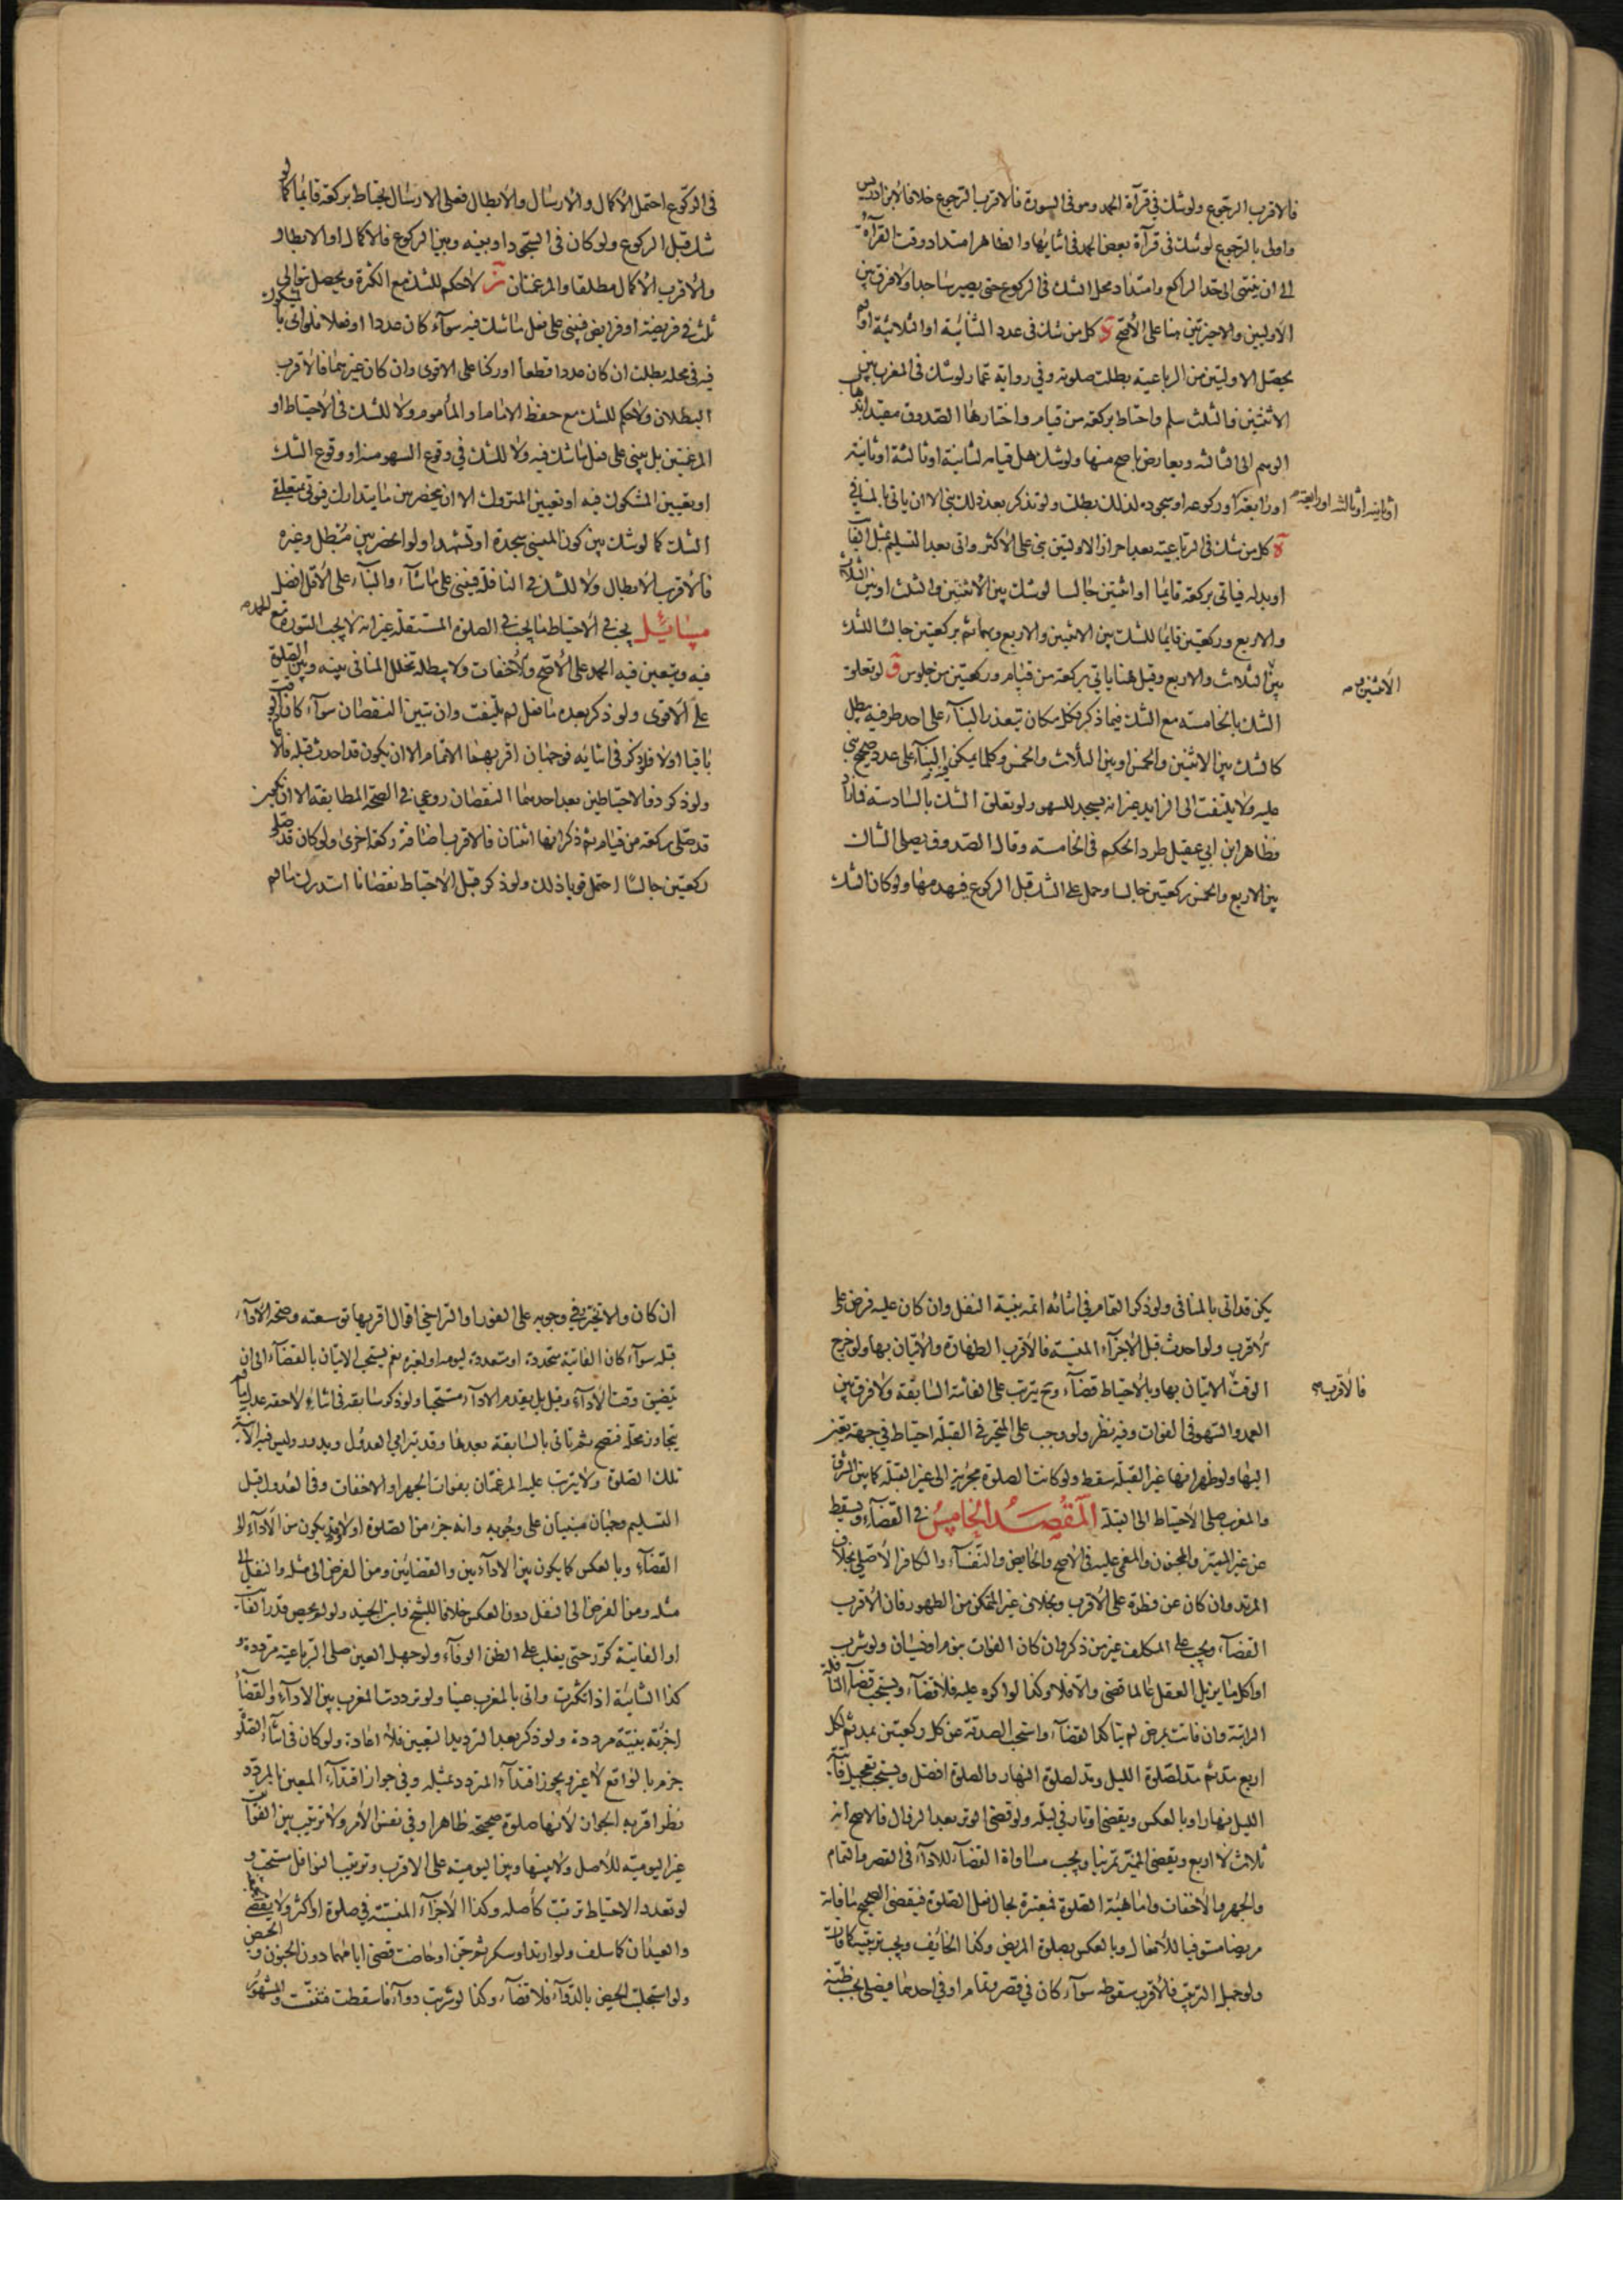 فالاقرب الرجوع ولو شك في قرآءة الحمد وهو في السورة فالاقرب الرجوع خلافا لابن ادريس
واولى بالرجوع لو شك في قرآءة بعض الحمد في اثنائها والظاهر امتداد وقت القرآءة
الى ان ينتهى الى حد الراكع وامتداد محل الشك في الركوع حتى يصير ساجدا ولا فرق بين
الاوليين والاخيرتين هنا على الاصح كل من شك في عدد الثنائية او الثلاثية او لم
يحصل الاوليتين من الرباعية بطلت صلوته وفي رواية عمار لو شك في المغرب بين
الاثنتين والثلث سلم واحتاط بركعة من قيام واختارها الصدوق مقيدا بذهاب
الوهم الى الثالثة ويعارض باصح منها ولو شك هل قيامه لثانية او ثالثة او ثانية
او رابعة او ركوعه او سجوده لذلك بطلت ولو تذكر بعد ذلك بنى الا ان ياتى بالمنافي
او ثانية او ثالثة او رابعة
كل من شك في الرباعية بعد احراز الاوليتين بنى على الاكثر واتى بعد التسليم بمثل الفائت
او بدله فياتي بركعة قايما او اثنتين جالسا لو شك بين الاثنتين والثلث او بين الثلاث
والاربع وركعتين قايما للشك بين الاثنتين والاربع وبهما ثم بركعتين جالسا للشك
بين الثلاث والاربع وقيل هنا ياتي بركعة من قيام وركعتين من جلوس لو تعلق
الاثنتين و
الشك بالخامسة مع الشك فيما ذكر فكل مكان يتعذر البنآء على احد طرفيه يبطل
كالشك بين الاثنتين والخمس او بين الثلاث والخمس وكلما يمكن البنآء على عدد صحيح بنى
عليه ولا يلتفت الى الزايد غير انه يسجد للسهو ولو تعلق الشك بالسادسة فما زاد
فظاهر ابن ابي عقيل طرد الحكم في الخامسة وقال الصدوق يصلى الشاك
بين الاربع والخمس ركعتين جالسا وحمل على الشك قبل الركوع فيهدمها ولو كان الشك
في الركوع احتمل الاكمال والارسال والابطال فعلى الارسال يحتاط بركعة قايما كما لو
شك قبل الركوع ولو كان في السجود او بينه وبين الركوع فالاكمال او الابطال
والاقرب الاكمال مطلقا والمرغمتان لا حكم للشك مع الكثرة ويحصل بتوالى
ثلث في فريضة او فرايض فيبنى على فعل ما شك فيه سوآء كان عددا او فعلا فلو اتى بالمشكوك
فيه في محله بطلت ان كان عددا قطعا او ركنا على الاقوى وان كان غيرهما فالاقرب
البطلان ولا حكم للشك مع حفظ الامام او المأموم ولا للشك في الاحتياط او
المرغمتين بل يبنى على فعل ما شك فيه ولا للشك في وقوع السهو منه او وقوع الشك
او تعيين المشكوك فيه او تعيين المتروك الا ان ينحصر بين ما يتدارك فيؤتى بمتعلق
الشك كما لو شك بين كون المنسي سجدة او تشهدا ولو انحصر بين مبطل وغيره
فالاقرب الابطال ولا للشك في النافلة فيبنى على ما شآء والبنآء على الاقل افضل
مسائل يجب في الاحتياط ما يجب في الصلوة المستقلة غير انه لا يجب السورة مع الحمد
فيه ويتعين فيه الحمد على الاصح والاخفات ولا يبطله تخلل المنافي بينه وبين الصلوة
على الاقوى ولو ذكر بعده ما فعل لم يلتفت وان تبين النقصان سوآء كان الوقت
باقيا اولا فلو ذكر في اثنايه فوجهان اقربهما الاتمام الا ان يكون قد احدث قبله فلا
ولو ذكر ذو الاحتياطين بعد احدهما النقصان روعي في الصحة المطابقة الا ان يكون
قد صلى ركعة من قيام ثم ذكر انها اثنتان فالاقرب اضافة ركعة اخرى ولو كان قد صلى
ركعتين جالسا احتمل قويا ذلك ولو ذكر قبل الاحتياط نقصانا استدرك ما لم
يكن قد اتى بالمنافى ولو ذكر التمام في اثنائه اتمه بنية النفل وان كان عليه فرض على
الاقرب ولو احدث قبل الاجزآء المنسية فالاقرب الطهارة والاتيان بها ولو خرج
الوقت فالاقرب الاتيان بها وبالاحتياط قضآء وح يترتب على الفائتة السابقة ولا فرق بين
العمد والسهو في الفوات وفيه نظر ولو وجب على المتحير في القبلة احتياط في جهة يتغير
اليها ولو ظهر انها غير القبلة سقط ولو كانت الصلوة مجزية الى غير القبلة كما بين المشرق
والمغرب صلى الاحتياط الى القبلة المقصد الخامس في القضآء ويسقط
عن غير المميز والمجنون والمغمى عليه في الاصح والحايض والنفسآء والكافر الاصلي بخلاف
المرتد وان كان عن فطرة على الاقرب وبخلاف غير المتمكن من الطهور فان الاقرب
القضآء ويجب على المكلف غير من ذكر وان كان الفوات بنوم او نسيان ولو شرب
او اكل ما يزيل العقل عالما قضى والا فلا وكذا لو اكره عليه فلا قضآء ويستحب قضآء النافلة
الراتبة وان فاتت بمرض لم يتاكد القضآء واستحب الصدقة عن كل ركعتين بمد ثم لكل
اربع مد ثم مد لصلوة الليل ومد لصلوة النهار والصلوة افضل ويستحب تعجيل فائتة
الليل نهارا وبالعكس ويقضى اوتار في ليلة ولو قضى الوتر بعد الزوال فالاصح انه
ثلاث لا اربع ويقضى المميز تمرينا ويجب مساواة القضآء للادآء في القصر والتمام
والجهر والاخفات واما هيئة الصلوة فمعتبرة بحال فعل الصلوة فيقضى الصحيح ما فاته
مريضا مستوفيا للافعال وبالعكس بصلوة المريض وكذا الخائف ويجب ترتيبه كما فات
ولو جهل الترتيب فالاقرب سقوطه سوآء كان في قصر وتمام او في احدهما فيصلى بحسب ظنه
ان كان والا تخير وفي وجوبه على الفور او التراخي اقوال اقربها توسعته وصحة الادآء
قبله سوآء كان الفائتة متحدة او متعددة ليومه او لغيره نعم يستحب الاتيان بالقضآء الى ان
يتضيق وقت الادآء وقيل بل يقدم الادآء مستحبا ولو ذكر سابقة في اثناء لاحقة عدل ما لم
يتجاوز محله فتصح ثم ياتى بالسابقة بعدها وقد يترامى العدول ويدور وليس فيه الا نية
تلك الصلوة ولا يترتب عليه المرغمتان بفوات الجهر او الاخفات وفي العدول قبل
التسليم وجهان مبنيان على وجوبه وانه جزء من الصلوة او لا ويكون من الادآء الى
القضآء وبالعكس كما يكون بين الادآءين والقضائين ومن الفرض الى مثله والنفل الى
مثله ومن الفرض الى النفل دون العكس خلافا للشيخ وابن الجنيد ولو لم يحص قدر الفائت
او الفائتة كرر حتى يغلب على الظن الوفآء ولو جهل العين صلى الرباعية مرددة و
كذا الثنائية اذا تكررت واتى بالمغرب عينا ولو ترددت المغرب بين الادآء والقضآء
اجزأته بنية مرددة ولو ذكر بعد الترديد التعيين فلا اعادة ولو كان في اثنآء الصلوة
جزم بالواقع لا غير ويجوز اقتدآء المردد بمثله وفي جواز اقتدآء المعين بالمردد
نظر اقربه الجواز لانها صلوة صحيحة ظاهرا وفي نفس الامر ولا ترتيب بين الفوائت
غير اليومية للاصل ولا بينها وبين اليومية على الاقرب وترتيب النوافل مستحب و
لو تعدد الاحتياط ترتب كأصله وكذا الاجزآء المنسية في صلوة او اكثر ولا يقضى الجمعة
والعيدان كما سلف ولو ارتد او سكر ثم جن او حاضت قضى ايامهما دون الجنون والحيض
ولو استجلبت الحيض بالدوآء فلا قضآء وكذا لو شربت دوآء فاسقطت فنفست والمشهور